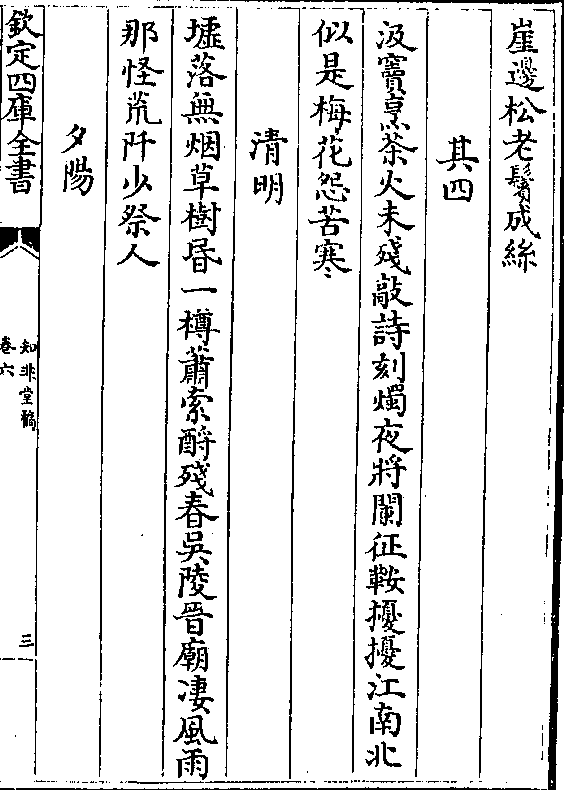 崖邊松老鬚成絲
其四
汲竇烹茶火未殘敲詩刻燭夜將闌征鞍擾擾江南北
似是梅花怨苦寒
清明
墟落無烟草樹昏一樽蕭索酹殘春吳陵晉廟凄風雨
那怪荒阡少祭人
夕陽
欽定四庫全書
知非堂稿
卷六
三